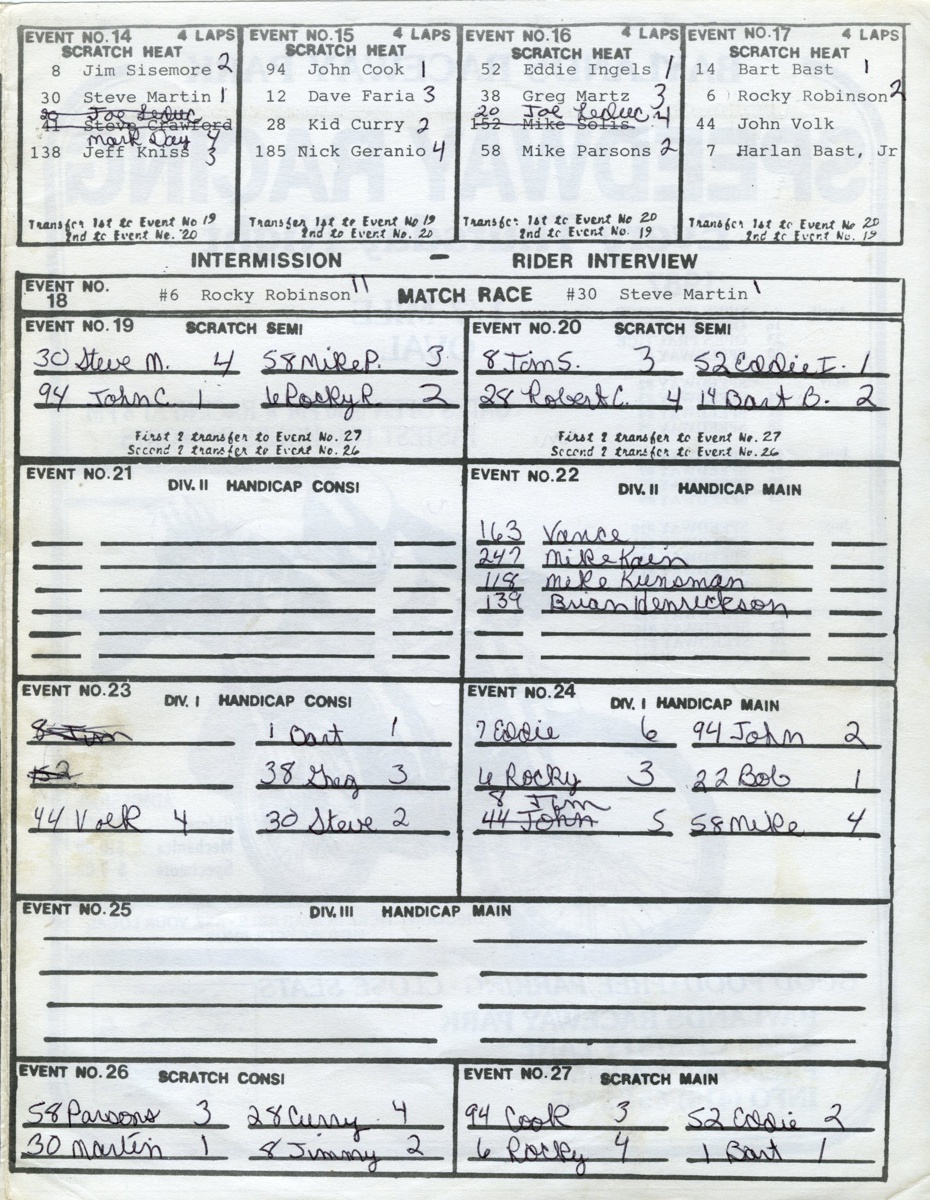 EVENT NO.14 4 LAPS
SCRATCH HEAT
8 Jim Sisemore 2
30 Steve Martin 1
20 Joe Leduc
41 Steve Crawford
Mark Day 4
138 Jeff Kniss 3
Transfer 1st to Event No 19
2nd to Event No. 20
EVENT NO.15 4 LAPS
SCRATCH HEAT
94 John Cook 1
12 Dave Faria 3
28 Kid Curry 2
185 Nick Geranio 4
Transfer 1st to Event No 19
2nd to Event No. 20
EVENT NO.16 4 LAPS
SCRATCH HEAT
52 Eddie Ingels 1
38 Greg Martz 3
20 Joe Leduc 4
152 Mike Solis
58 Mike Parsons 2
Transfer 1st to Event No 20
2nd to Event No. 19
EVENT NO.17 4 LAPS
SCRATCH HEAT
14 Bart Bast 1
6 Rocky Robinson 2
44 John Volk
7 Harlan Bast, Jr
Transfer 1st to Event No 20
2nd to Event No. 19
INTERMISSION - RIDER INTERVIEW
EVENT NO. 18
#6 Rocky Robinson 11 MATCH RACE #30 Steve Martin 1
EVENT NO.19 SCRATCH SEMI
30 Steve M. 4 58 Mike P. 3
94 John C. 1 6 Rocky R. 2
First 2 transfer to Event No. 27
Second 2 transfer to Event No. 26
EVENT NO.20 SCRATCH SEMI
8 Jim S. 3 52 Eddie I. 1
28 Robert C. 4 14 Bart B. 2
First 2 transfer to Event No. 27
Second 2 transfer to Event No. 26
EVENT NO.21
DIV. II HANDICAP CONSI
EVENT NO.22
DIV. II HANDICAP MAIN
163 Vance
247 Mike Kain
118 Mike Kunsman
139 Brian Henrickson
EVENT NO.23
DIV. I HANDICAP CONSI
8 Jim 1 Bart 1
52 38 Greg 3
44 Volk 4 30 Steve 2
EVENT NO.24
DIV. I HANDICAP MAIN
7 Eddie 6 94 John 2
6 Rocky 3 22 Bob 1
8 Jim
44 John 5 58 Mike 4
EVENT NO.25 DIV. III HANDICAP MAIN
EVENT NO.26 SCRATCH CONSI
58 Parsons 3 28 Curry 4
30 Martin 1 8 Jimmy 2
EVENT NO.27 SCRATCH MAIN
94 Cook 3 52 Eddie 2
6 Rocky 4 1 Bart 1